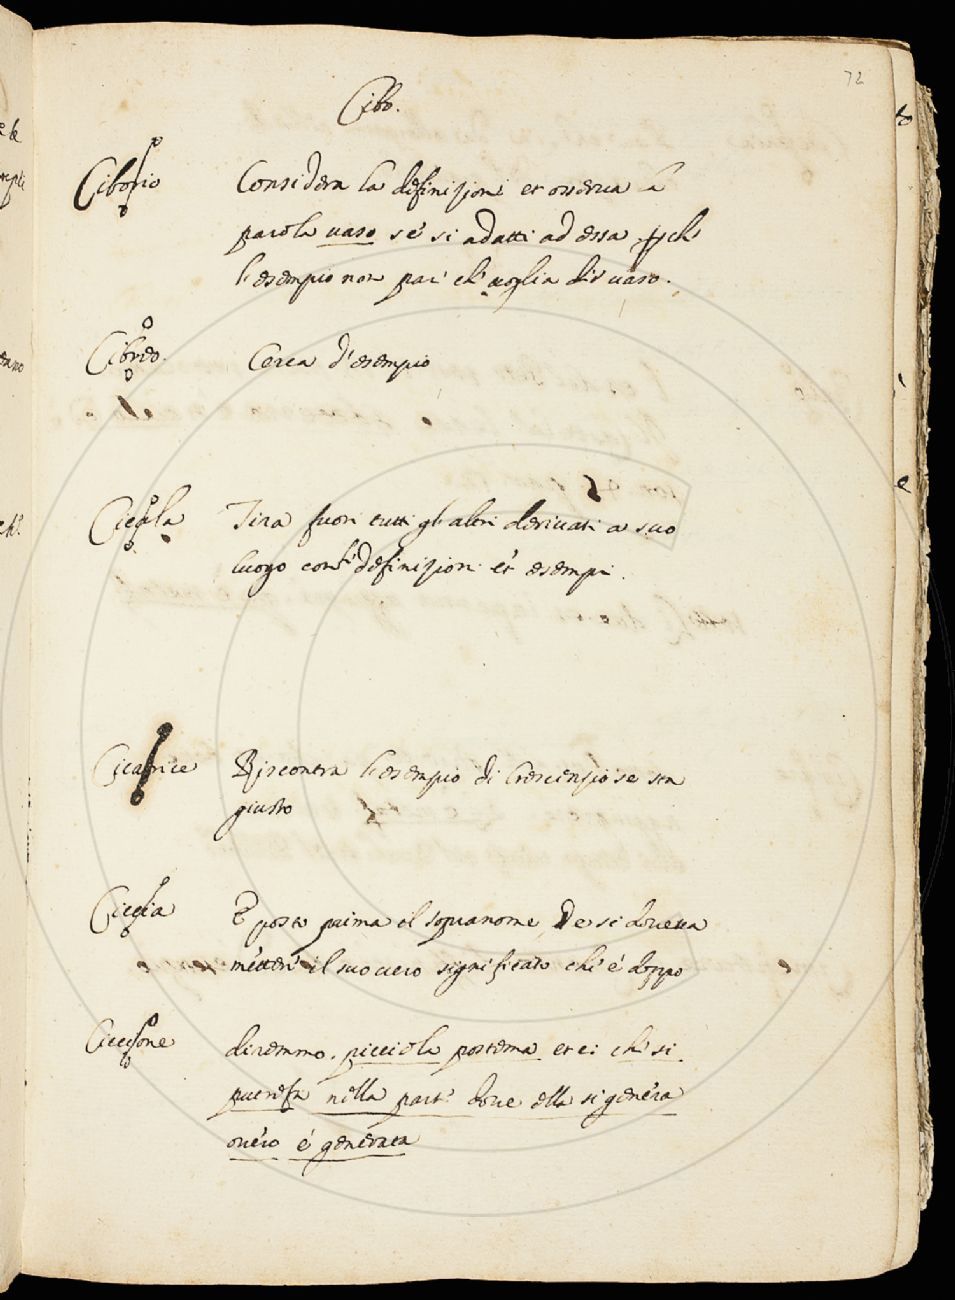 72
Cibo.
Ciborio Considera la definizione et osserva la
parola vaso se si adatti ad essa perche
l'esempio non par' ch' voglia dir vaso.
Cibreo. Cerca d'esempio
Cicala Tira fuori tutti gli altri derivati a suo
luogo con definizioni et esempi.
Cicatrice Riscontra l'esempio di Crescenzio se sta
giusto
Ciccia È posto prima il sopranome, De si doverra
metter' il suo vero significato ch' è doppo
Ciccione diremmo. picciola postema et ci ch' si
putrefa nella part' dove ella si genera
overo è generata